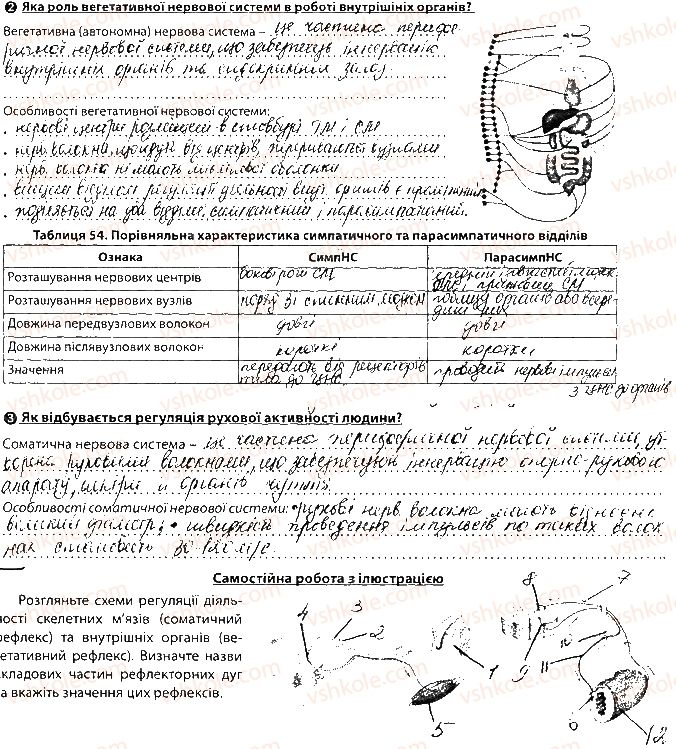 ❷ Яка роль вегетативної нервової системи в роботі внутрішніх органів?
Вегетативна (автономна) нервова система – це частина перифе-
ричної нервової системи, що забезпечує іннервацію
внутрішніх органів та ендокринних залоз
Особливості вегетативної нервової системи:
• нервові центри розташовані в стовбурі ГМ і СМ
• нерв. волокна, що йдуть від центрів, перериваються вузлами
• нерв. волокна не мають мієлінової оболонки
• органів є
• поділяється на два відділи, симпатичний і парасимпатичний.
Таблиця 54. Порівняльна характеристика симпатичного та парасимпатичного відділів
Ознака СимпНС ПарасимпНС
Розташування нервових центрів бокові роги СМ
Розташування нервових вузлів поруч зі спинним мозком поблизу органів або всере-
дині них
Довжина передвузлових волокон довгі довгі
Довжина післявузлових волокон короткі короткі
Значення передають від рецепторів
тіла до ЦНС. проводить нервові імпульси
з ЦНС до органів
❸ Як відбувається регуляція рухової активності людини?
Соматична нервова система – це частина периферичної нервової системи, ут-
ворена руховими волокнами, що забезпечують іннервацію опорно-рухового
апарату, шкіри й органів чуття
Особливості соматичної нервової системи: • рухові нерв. волокна мають відносно
великий діаметр; • швидкість проведення імпульсів по таких волок-
нах становить до 120 м/с.
Самостійна робота з ілюстрацією
Розгляньте схеми регуляції діяль-
ності скелетних м'язів (соматичний
рефлекс) та внутрішніх органів (ве-
гетативний рефлекс). Визначте назви
складових частин рефлекторних дуг
та вкажіть значення цих рефлексів.
4 3 2 1 5
8 7 9 11 10 6 12
vshkole.com